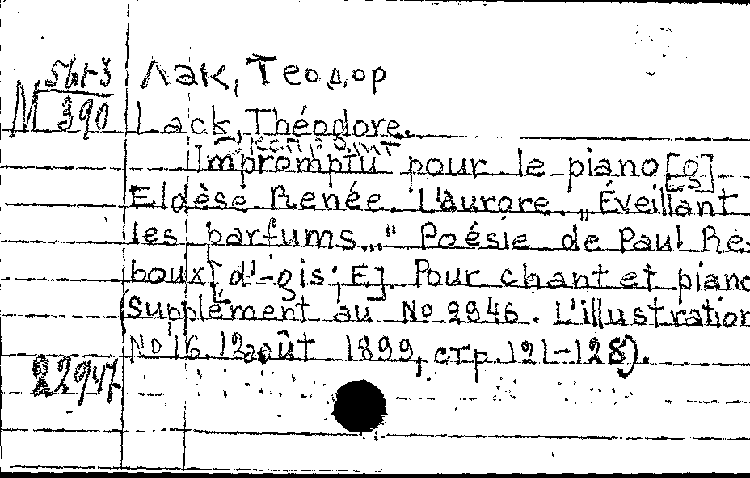 М 5613
390
Лак, Теодор
Lack, Théodore.
Impromptu pour le piano [g]
Eldèse Renée. L'aurore. „Éveillant
les parfums..." Poésie de Paul Re-
boux [d'-gis; E]. Pour chant et piano
(Supplément au No 2946. L'illustration
No 16. 12 août 1899, стр. 121-128).
22947